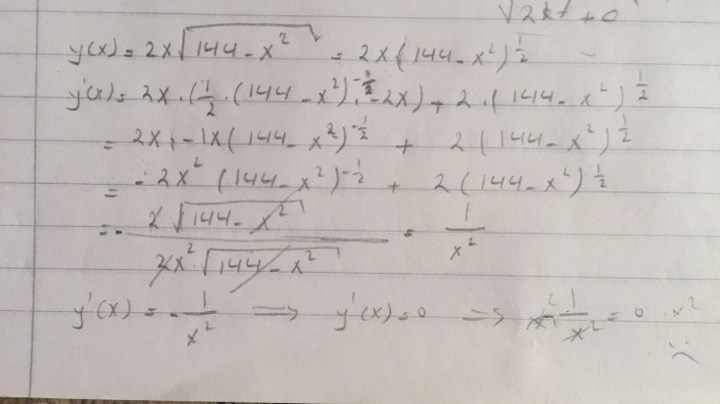 √2x+ + 0
y(x) = 2x√(144 - x²) = 2x(144 - x²)^½
y'(x) = 2x · (½ · (144 - x²)^-½ · -2x) + 2 · (144 - x²)^½
= 2x · -1x(144 - x²)^-½ + 2(144 - x²)^½
= -2x² (144 - x²)^-½ + 2(144 - x²)^½
= - 2√(144 - x²) / 2x² √(144 - x²) = 1/x²
y'(x) = - 1/x² ⟹ y'(x) = 0 ⟹ 1/x² = 0 · x²
:(